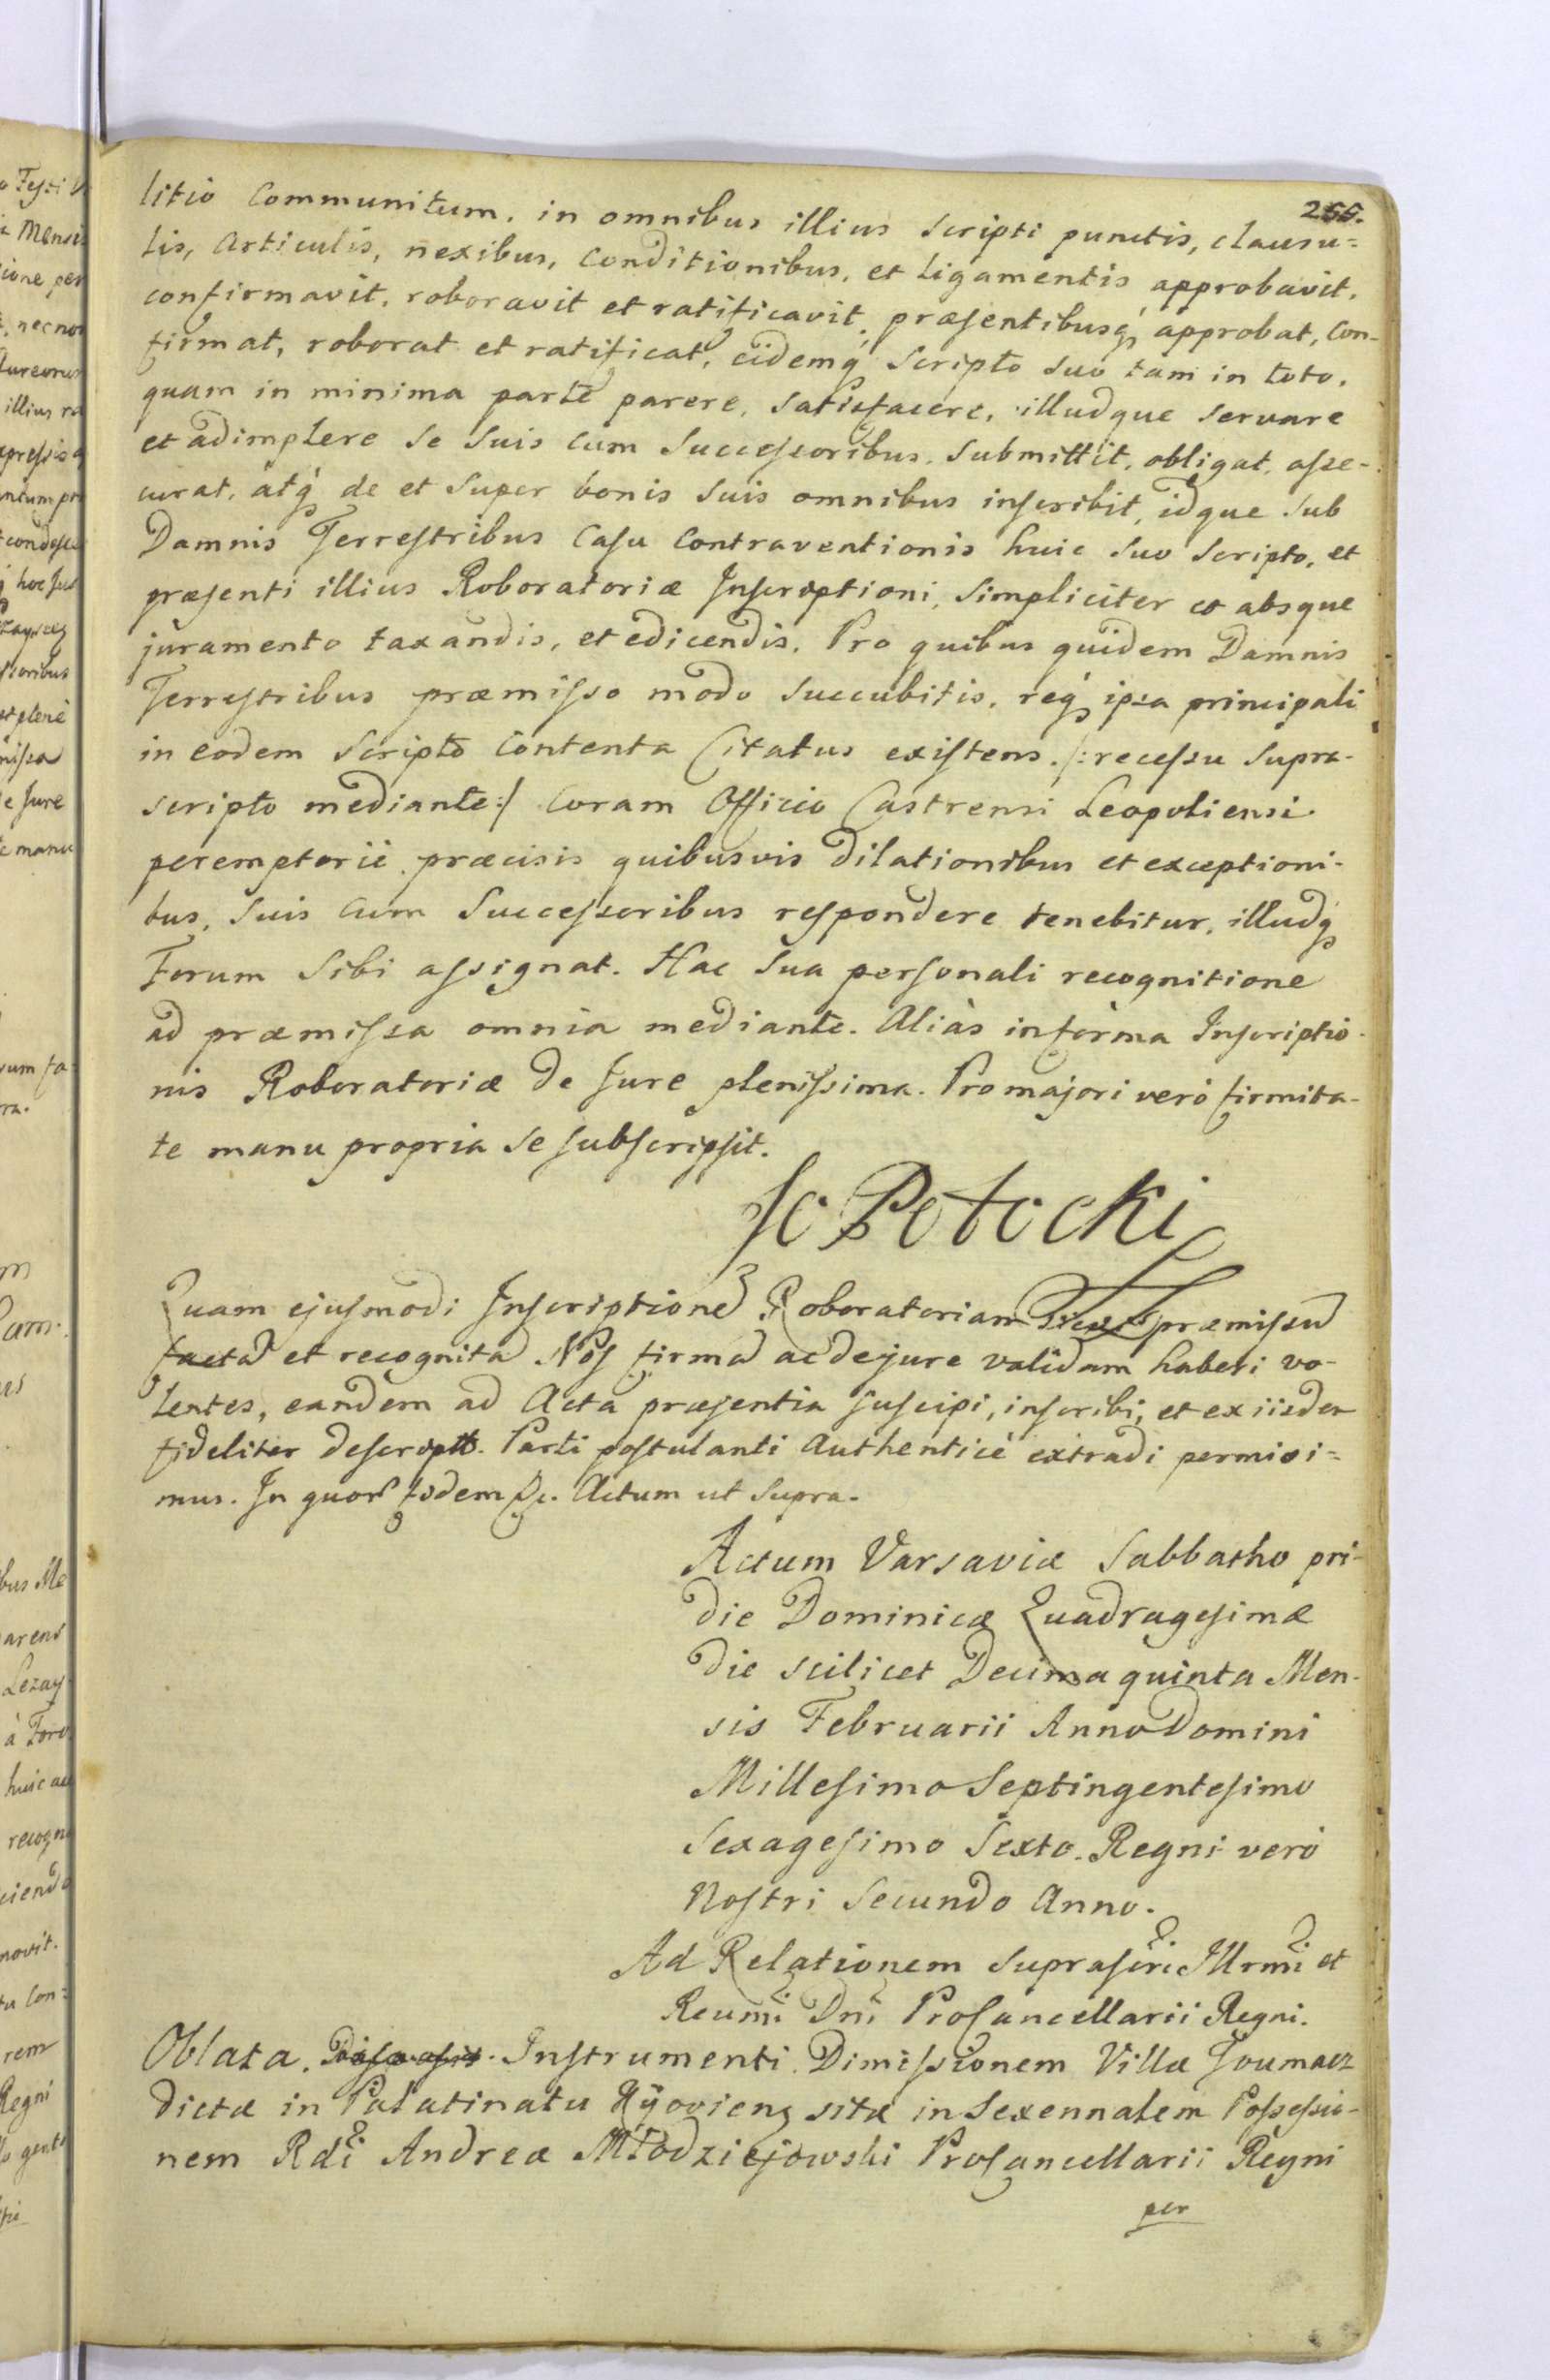 255.
litio Communitum. in omnibus illius Scripti punctis, clausu=
lis, Articulis, nexibus, Conditionibus, et Ligamentis approbavit.
confirmavit, roboravit et ratificavit, præsentibusq; approbat, Con-
firmat, roborat et ratificat, eidemq; Scripto suo tam in toto,
quam in minima parte parere, Satisfacere, illudque servare
et adimplere Se Suis cum Successoribus. Submittit, obligat, asse-
curat, atq; de et Super bonis Suis omnibus inscribit, idque Sub
Damnis Terrestribus Casu Contraventionis huic Suo Scripto, et
præsenti illius Roboratoriæ Inscriptioni, Simpliciter et absque
juramento taxandis, et edicendis, Pro quibus quidem Damnis
Terrestribus præmisso modo Succubitis, req; ipsa principali
in eodem Scripto Contenta Citatus existens. /:recessu Supra-
scripto mediante:/ Coram Officio Castrensi Leopoliensi.
peremptorie præcisis quibusvis dilationibus et exceptioni-
bus, Suis Cum Successoribus respondere tenebitur, illudq;
Forum Sibi assignat. Hac Sua personali recognitione
ad præmissa omnia mediante. Aliàs in forma Inscriptio-
nis Roboratoriæ de Jure plenissima. Pro majori verò firmita-
te manu propria Se subscripsit.
Potocki
Quam ejusmodi Inscriptione Roboratoriam præmissu
facta et recognita Nos firma ac de jure validam haberi vo-
lentes, eandem ad Acta præsentia suscipi, inscribi, et ex iisdem
fideliter descriptt. Parti postulanti Authenticè extradi permisi=
mus. In quor fidem &c. Actum ut Supra.
Actum Varsaviæ Sabbatho pri-
die Dominicæ Quadragesimæ
die scilicet Decima quinta Men-
sis Februarii Anno Domini
Millesimo Septingentesimo
Sexagesimo Sexto. Regni verò
Nostri Secundo Anno.
Ad Relationem Suprascri Illrmi et
Reumi Dni Procancellarii Regni.
Oblata. Instrumenti Dimissionem Villæ Toumacz
dictæ in Palatinatu Kÿoviens sitæ in Sexennalem Possessio-
nem Rdi Andreæ Młodziejowski Procancellarii Regni
per